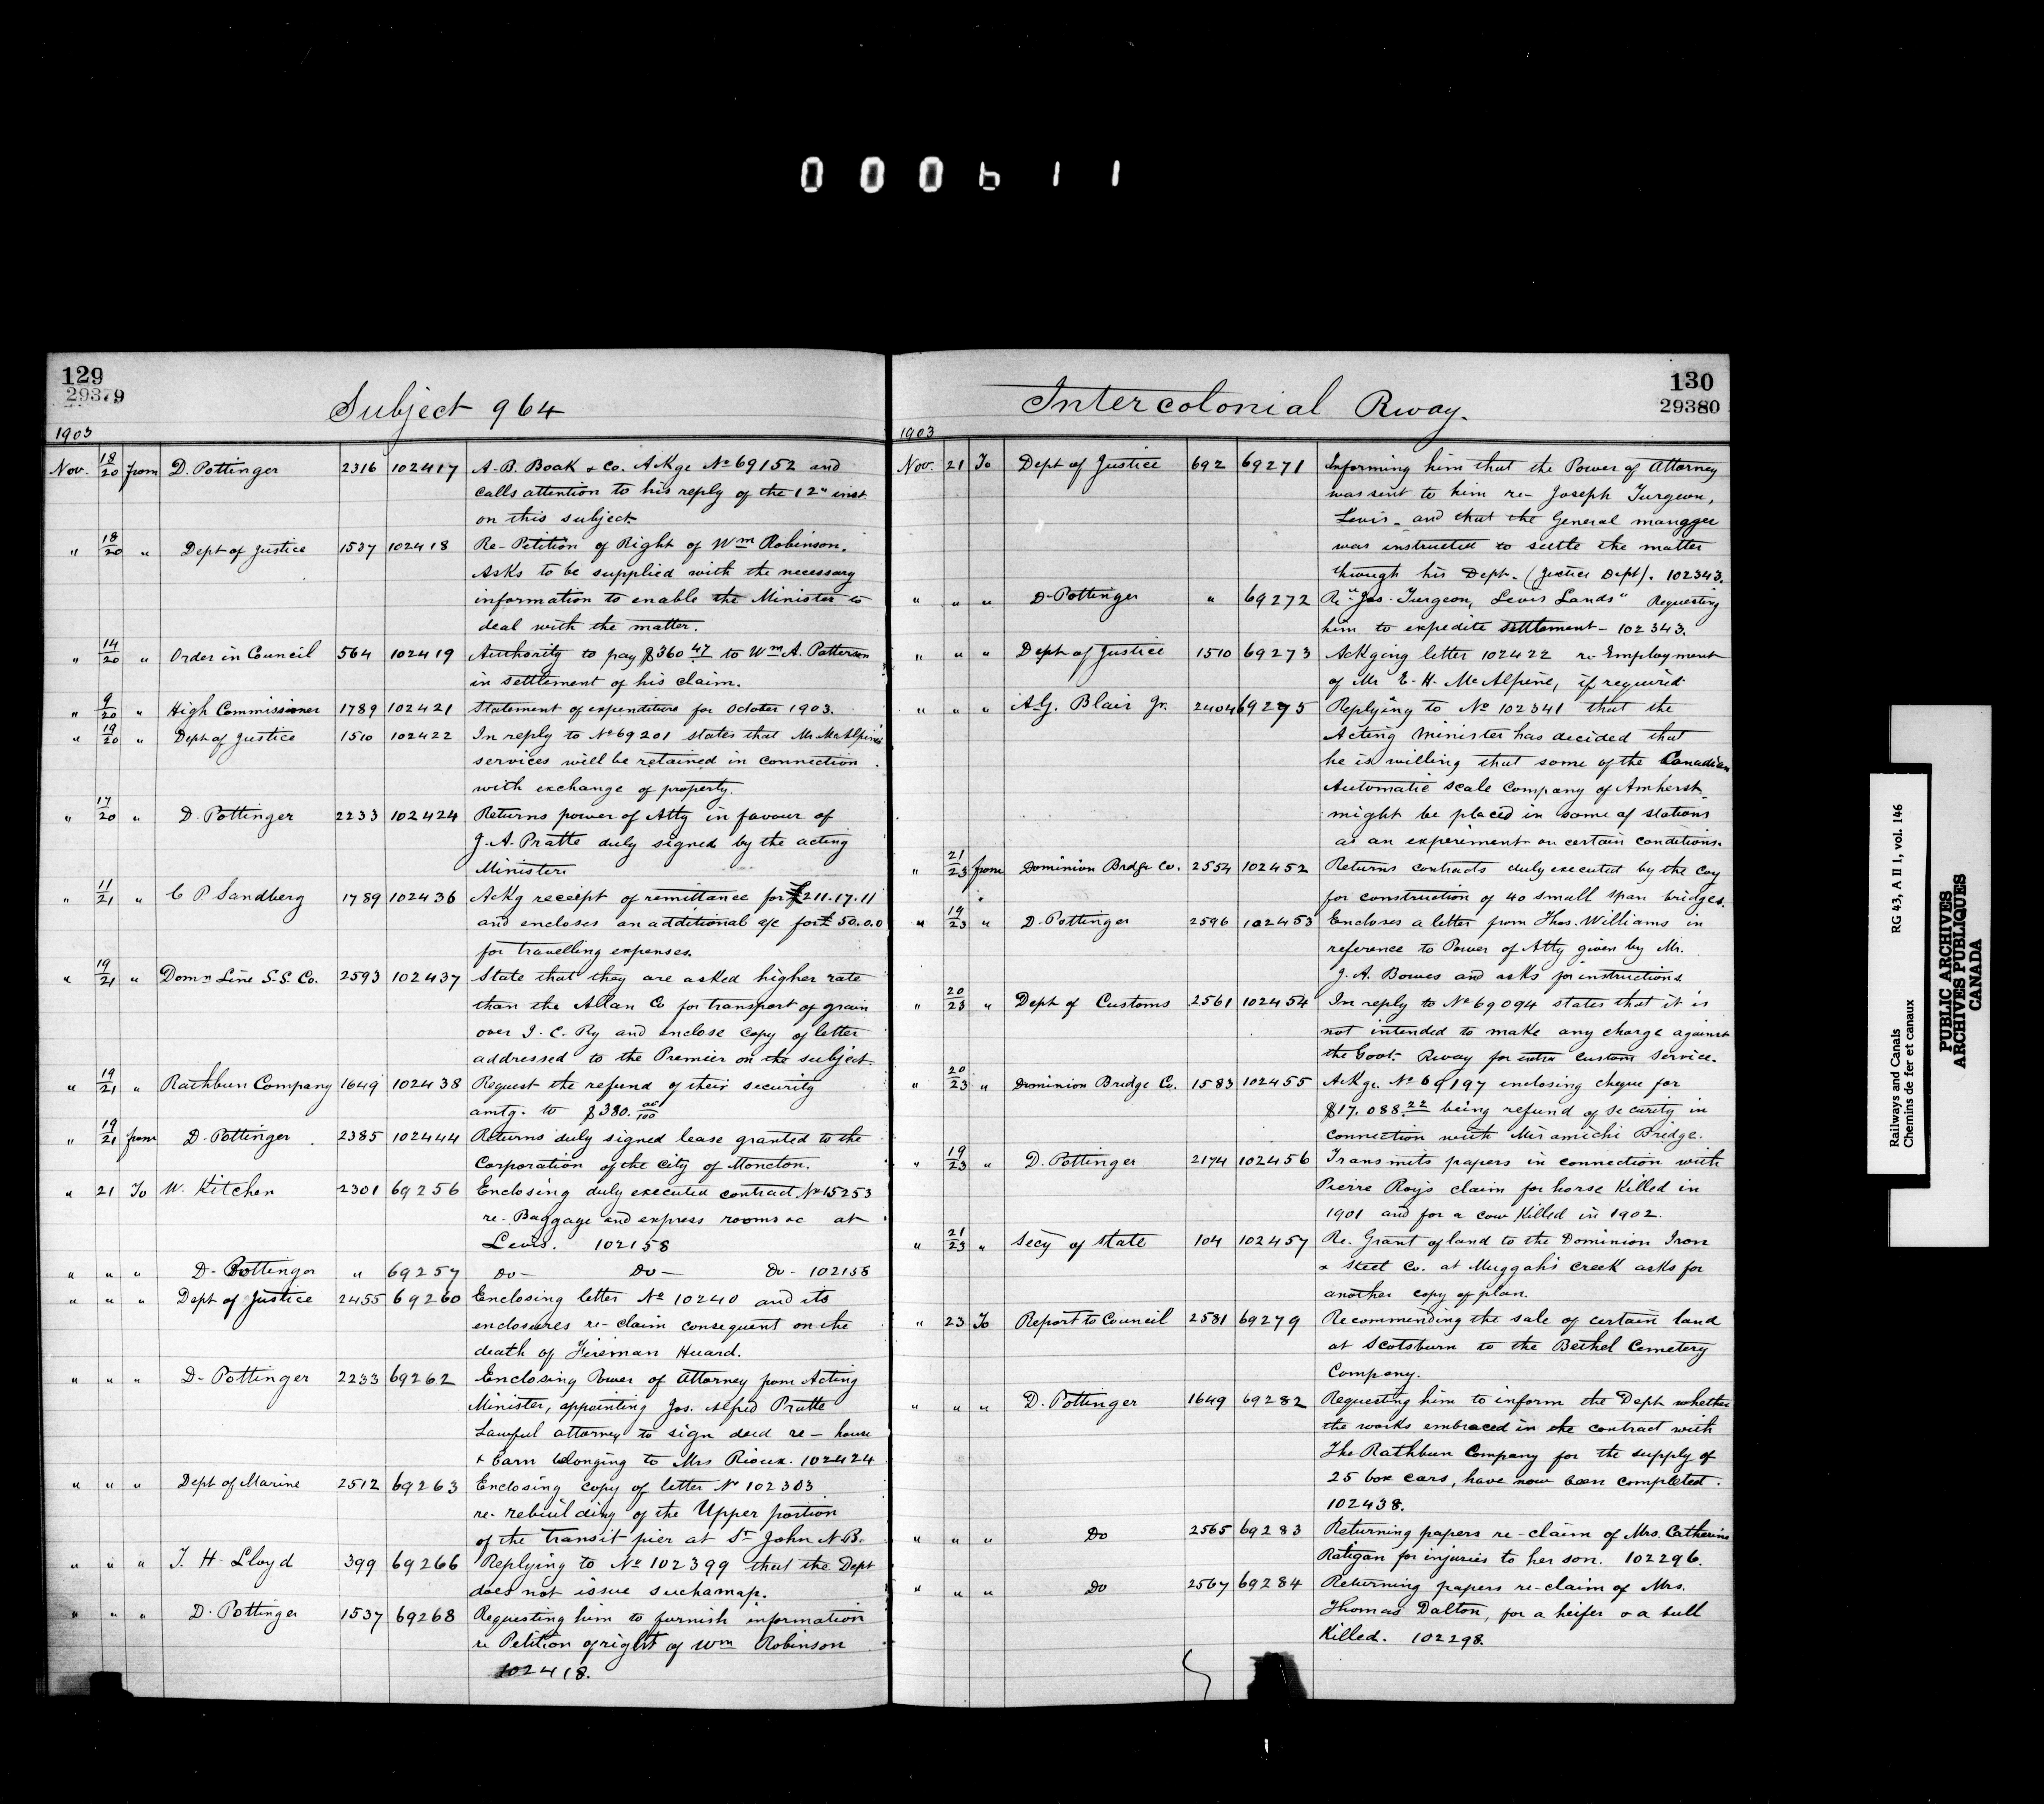 000611
129
29379
Subject 964
1903
Nov. 18/20 from D. Pottinger 2316 102417 A. B. Boak & Co. Ackge No 69152 and
calls attention to his reply of the 12" inst
on this subject.
" 18/20 " Dept of Justice 1537 102418 Re- Petition of Right of Wm Robinson.
Asks to be supplied with the necessary
information to enable the Minister to
deal with the matter.
" 14/20 " Order in Council 564 102419 Authority to pay $360 47 to Wm A. Patterson
in settlement of his claim.
" 9/20 " High Commissioner 1789 102421 Statement of expenditure for October 1903.
" 19/20 " Dept of Justice 1510 102422 In reply to No 69201 states that Mr McAlpine's
services will be retained in connection
with exchange of property.
" 17/20 " D. Pottinger 2233 102424 Returns power of Atty in favour of
J. A. Pratte duly signed by the acting
Minister.
" 11/21 " C P Sandberg 1789 102436 Ackg receipt of remittance for £211.17.11
and encloses an additional a/c for £50.0.0
for travelling expenses.
" 19/21 " Domn Line S.S. Co. 2593 102437 State that they are asked higher rate
than the Allan Co for transport of grain
over I. C. Ry and enclose copy of letter
addressed to the Premier on the subject.
" 19/21 " Rathbun Company 1649 102438 Request the refund of their security
amtg. to $380. 00/100
" 19/21 from D. Pottinger 2385 102444 Returns duly signed lease granted to the
Corporation of the City of Moncton.
" 21 To W. Kitchen 2301 69256 Enclosing duly executed contract No 15253
re- Baggage and express rooms &c at
Levis. 102158
" " " D. Pottinger " 69257 Do- Do- Do- 102158
" " " Dept of Justice 2455 69260 Enclosing letter No 10240 and its
enclosures re- claim consequent on the
death of Fireman Huard.
" " " D- Pottinger 2233 69262 Enclosing Power of Attorney from Acting
Minister, appointing Jos. Alfred Pratte
Lawful attorney to sign deed re- house
& barn belonging to Mrs Rioux. 102424
" " " Dept of Marine 2512 69263 Enclosing copy of letter No 102303
re- rebuilding of the Upper portion
of the transit pier at St John N.B.
" " " T. H. Lloyd 399 69266 Replying to No 102399 that the Dept
does not issue such a map.
" " " D. Pottinger 1537 69268 Requesting him to furnish information
re Petition of right of Wm Robinson
102418.
130
29380
Intercolonial Rway.
1903
Nov. 21 To Dept of Justice 692 69271 Informing him that the Power of Attorney
was sent to him re- Joseph Turgeon,
Levis- and that the General manager
was instructed to settle the matter
through his Dept. (Justice Dept). 102343.
" " " D. Pottinger " 69272 Re "Jos. Turgeon, Levis Lands" Requesting
him to expedite settlement- 102343.
" " " Dept of Justice 1510 69273 Ackging letter 102422 re- Employment
of Mr E. H. McAlpine, if required
" " " A.G. Blair Jr. 2404 69275 Replying to No 102341 that the
Acting Minister has decided that
he is willing that some of the Canadian
Automatic scale Company of Amherst
might be placed in some of stations
as an experiment on certain conditions.
" 21/23 from Dominion Brdge Co. 2554 102452 Returns contracts duly executed by the Coy
for construction of 40 small span bridges.
" 19/23 " D. Pottinger 2596 102453 Encloses a letter from Thos. Williams in
reference to Power of Atty given by Mr.
J. A. Bowes and asks for instructions.
" 20/23 " Dept of Customs 2561 102454 In reply to No 69094 states that it is
not intended to make any charge against
the Govt. Rway for extra custom service.
" 20/23 " Dominion Bridge Co. 1583 102455 Ackge. No 69197 enclosing cheque for
$17.088.22 being refund of security in
connection with Miramichi Bridge.
" 19/23 " D. Pottinger 2174 102456 Transmits papers in connection with
Pierre Roy's claim for horse killed in
1901 and for a cow killed in 1902.
" 21/23 " Secy of State 104 102457 Re. Grant of land to the Dominion Iron
& Steel Co. at Muggah's Creek asks for
another copy of plan.
" 23 To Report to Council 2581 69279 Recommending the sale of certain land
at Scotsburn to the Bethel Cemetery
Company.
" " " D. Pottinger 1649 69282 Requesting him to inform the Dept whether
the works embraced in the contract with
The Rathbun Company for the supply of
25 box cars, have now been completed.
102438.
" " " Do 2565 69283 Returning papers re- claim of Mrs. Catherine
Ratigan for injuries to her son. 102296.
" " " Do 2567 69284 Returning papers re- claim of Mrs.
Thomas Dalton, for a heifer & a bull
killed. 102298.
Railways and Canals RG 43, A II 1, vol. 146
Chemins de fer et canaux
PUBLIC ARCHIVES
ARCHIVES PUBLIQUES
CANADA